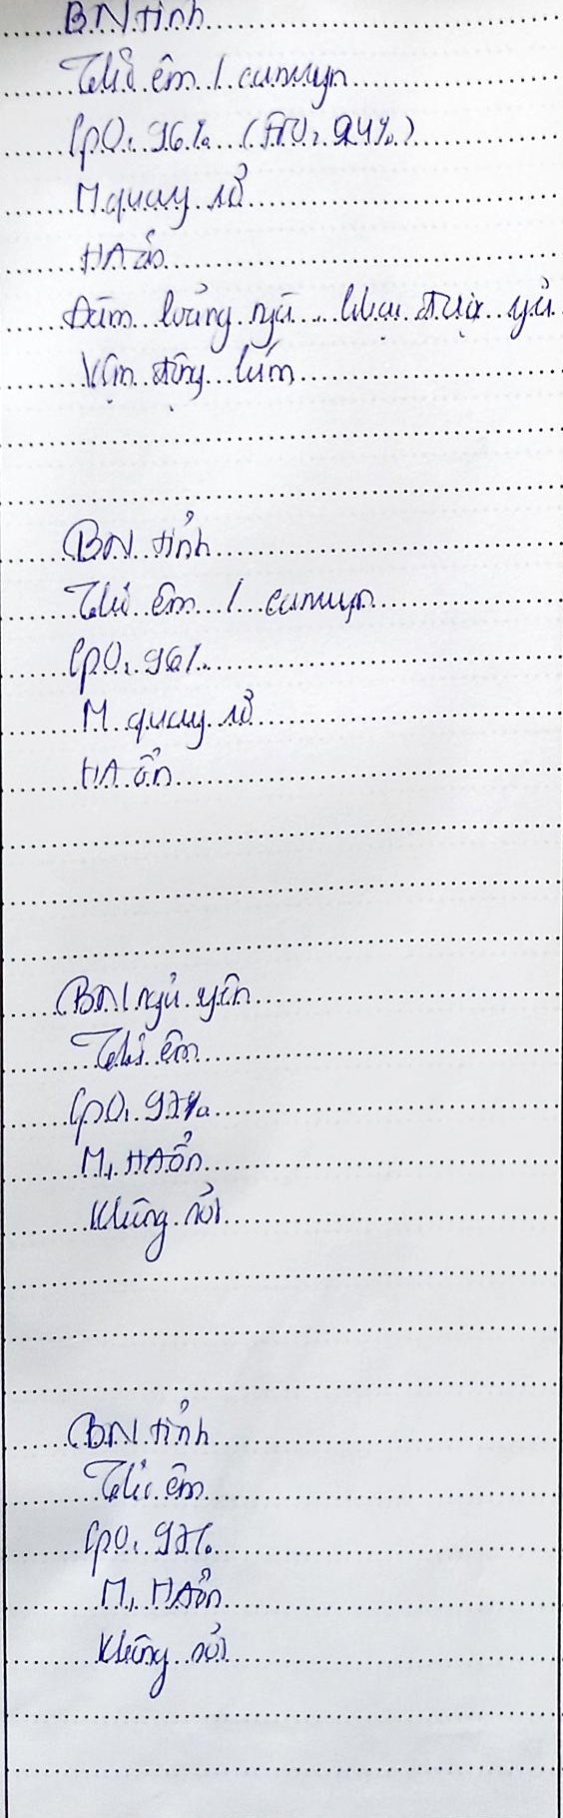 BN tỉnh
Thở êm / canuyn
SpO₂ 96% (FiO₂ 24%)
M quay rõ
HA ổn
Đàm loãng ngà khạc được
Vận động kém
BN tỉnh
Thở êm / canuyn
SpO₂ 96%
M quay rõ
HA ổn
BN ngủ yên
Thở êm
SpO₂ 97%
M, HA ổn
Không sốt
BN tỉnh
Thở êm
SpO₂ 97%
M, HA ổn
Không sốt